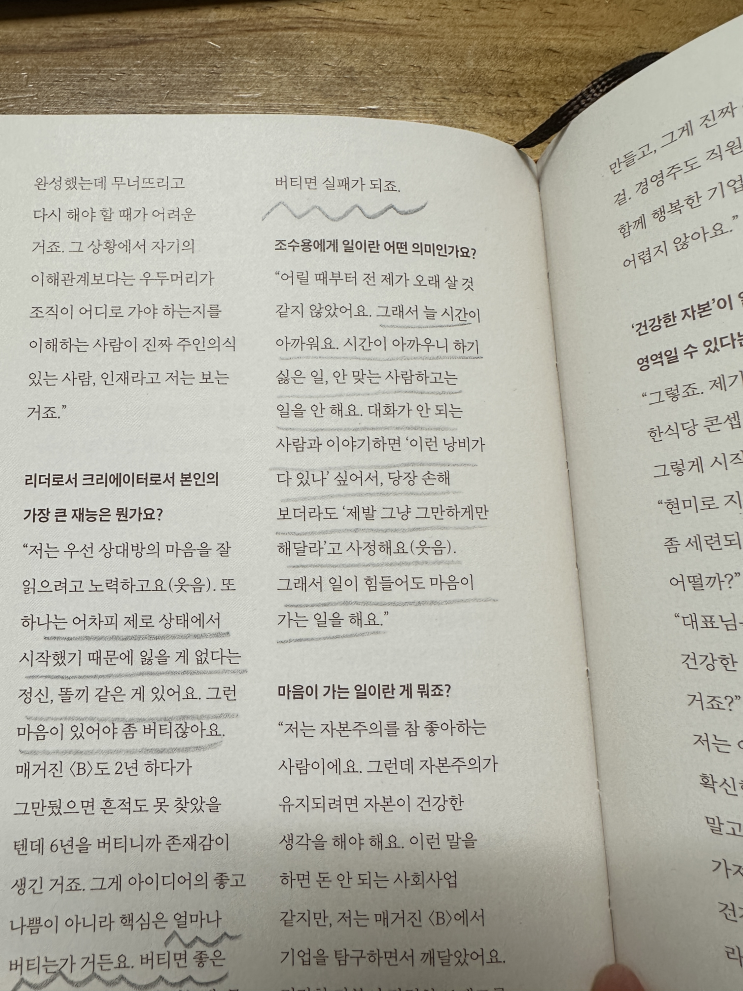 완성했는데 무너뜨리고
다시 해야 할 때가 어려운
거죠. 그 상황에서 자기의
이해관계보다는 우두머리가
조직이 어디로 가야 하는지를
이해하는 사람이 진짜 주인의식
있는 사람, 인재라고 저는 보는
거죠.”
리더로서 크리에이터로서 본인의
가장 큰 재능은 뭔가요?
“저는 우선 상대방의 마음을 잘
읽으려고 노력하고요(웃음). 또
하나는 어차피 제로 상태에서
시작했기 때문에 잃을 게 없다는
정신, 똘끼 같은 게 있어요. 그런
마음이 있어야 좀 버티잖아요.
매거진 〈B〉도 2년 하다가
그만뒀으면 흔적도 못 찾았을
텐데 6년을 버티니까 존재감이
생긴 거죠. 그게 아이디어의 좋고
나쁨이 아니라 핵심은 얼마나
버티는가 거든요. 버티면 좋은
버티면 실패가 되죠.
조수용에게 일이란 어떤 의미인가요?
“어릴 때부터 전 제가 오래 살 것
같지 않았어요. 그래서 늘 시간이
아까워요. 시간이 아까우니 하기
싫은 일, 안 맞는 사람하고는
일을 안 해요. 대화가 안 되는
사람과 이야기하면 ‘이런 낭비가
다 있나’ 싶어서, 당장 손해
보더라도 ‘제발 그냥 그만하게만
해달라’고 사정해요(웃음).
그래서 일이 힘들어도 마음이
가는 일을 해요.”
마음이 가는 일이란 게 뭐죠?
“저는 자본주의를 참 좋아하는
사람이에요. 그런데 자본주의가
유지되려면 자본이 건강한
생각을 해야 해요. 이런 말을
하면 돈 안 되는 사회사업
같지만, 저는 매거진 〈B〉에서
기업을 탐구하면서 깨달았어요.
만들고, 그게 진짜
걸. 경영주도 직원
함께 행복한 기업
어렵지 않아요.”
‘건강한 자본’이
영역일 수 있다는
“그렇죠. 제가
한식당 콘셉
그렇게 시작
“현미로 지
좀 세련되
어떨까?”
“대표님
건강한
거죠?”
저는
확신
말고
가
건
라